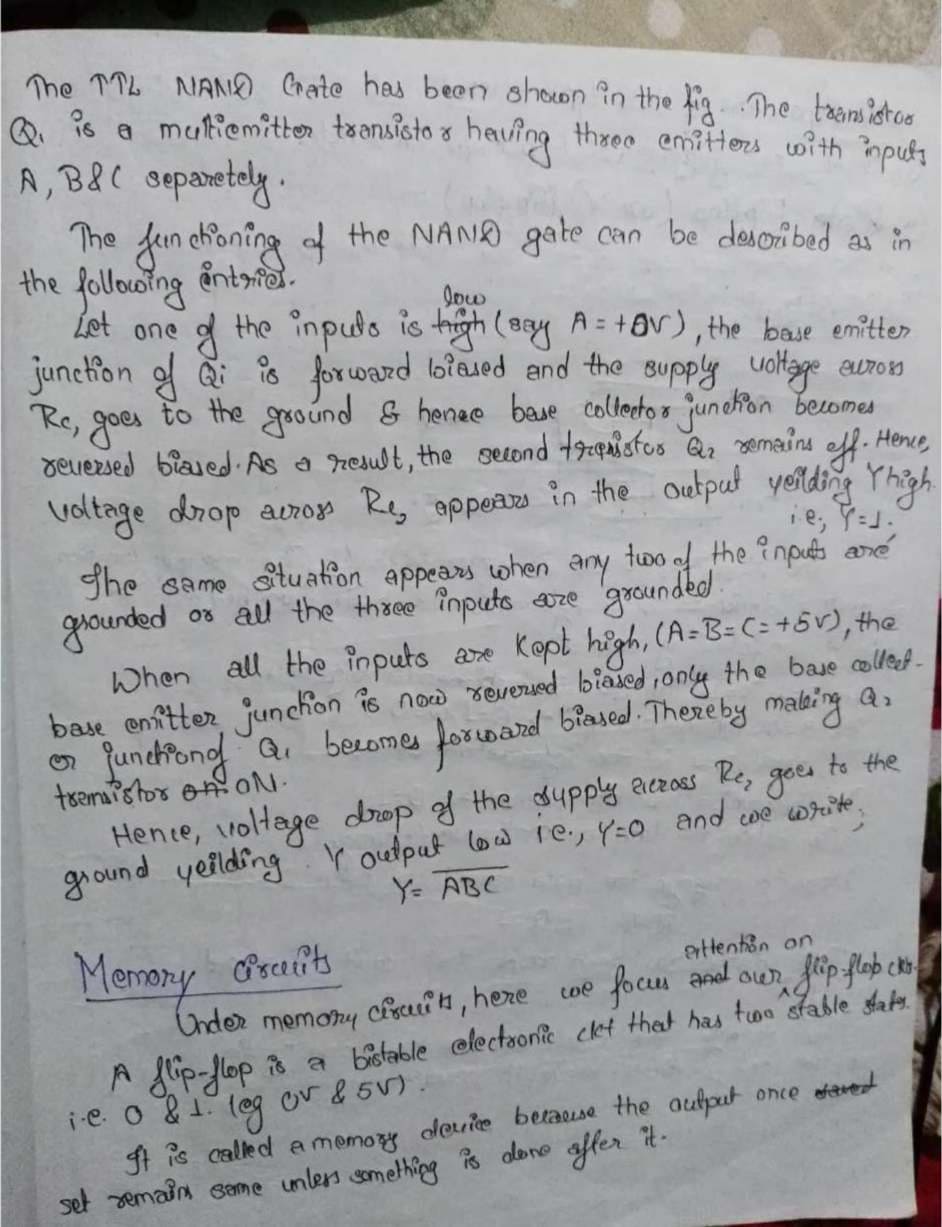 The TTL NAND Gate has been shown in the fig. The transistor
Q₁ is a multiemitter transistor having three emitters with inputs
A, B & C separetely.
The functioning of the NAND gate can be described as in
the following entries.
low
Let one of the inputs is high (say A = +0V), the base emitter
junction of Qi is forward biased and the supply voltage across
Rc₁ goes to the ground & henee base collector junction becomes
reversed biased. As a result, the second transistor Q₂ remains off. Hence,
voltage drop across Rc₂ appears in the output yeilding Y high.
i.e., Y=1.
The same situation appears when any two of the inputs are
grounded or all the three inputs are grounded.
When all the inputs are kept high, (A=B=C=+5V), the
base emitter junction is now reversed biased, only the base collect-
or junction of Q₁ becomes forward biased. Thereby making Q₂
transistor off ON.
Hence, voltage drop of the supply across Rc₂ goes to the
ground yeilding Y output low i.e., Y=0 and we write;
Y= \overline{ABC}
Memory Circuits
attention on
Under memory circuits, here we focus and our flip-flop ckts.
A flip-flop is a bistable electronic ckt that has two stable states.
i.e. 0 & 1. (eg 0V & 5V).
It is called a memory device because the output once
set remains same unless something is done after it.